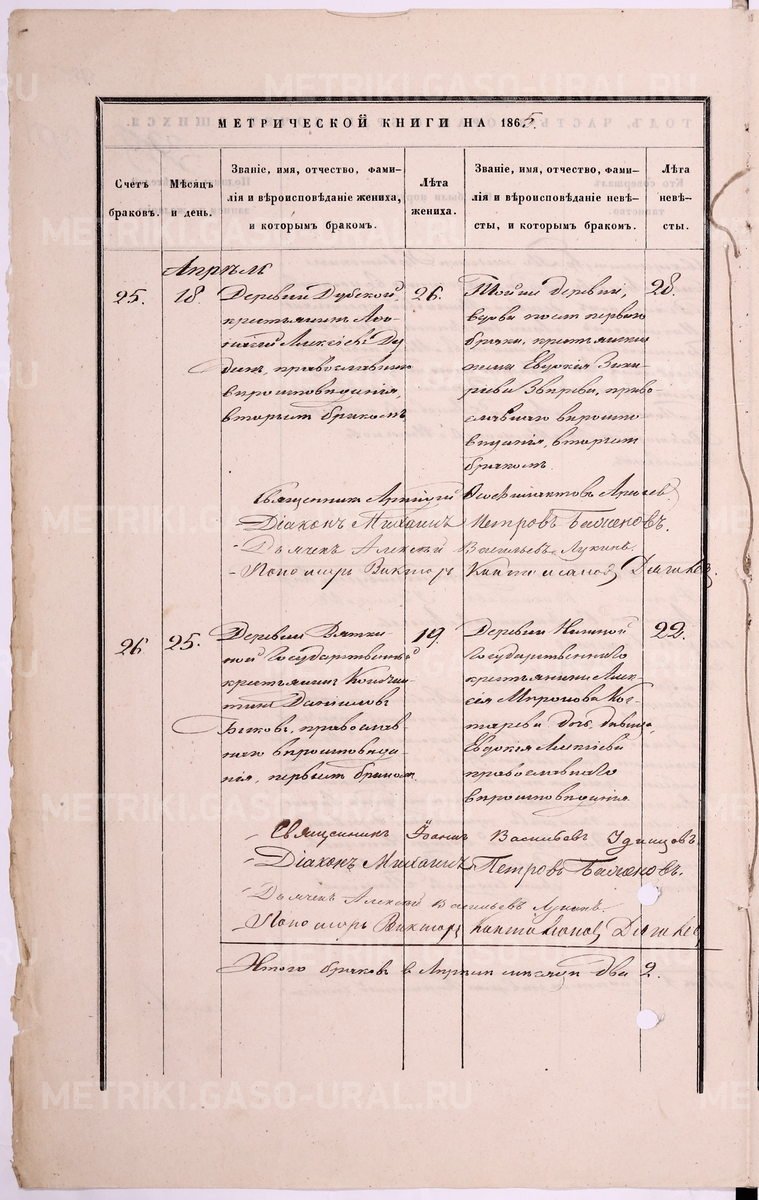 METRIKI.GASO-URAL.RU
МЕТРИЧЕСКОЙ КНИГИ НА 1865.
Счетъ браковъ.
Мѣсяцъ и день.
Званіе, имя, отчество, фами-
лія и вѣроисповѣданіе жениха,
и которымъ бракомъ.
Лѣта жениха.
Званіе, имя, отчество, фами-
лія и вѣроисповѣданіе невѣ-
сты, и которымъ бракомъ.
Лѣта невѣ-
сты.
Апрѣль
25. 18. Деревни Дубской, 26.
крестьянинъ
Алексіевъ Ду
динъ, православнаго
вѣроисповеданія,
вторымъ бракомъ
Тойже деревни, 28.
вдова послѣ перваго
брака, крестьянская
жена Евдокія Заха
рова Звѣрева, право
славнаго вѣроиспо
веданія, вторымъ
бракомъ.
Священникъ Аркадій
Діаконъ Михаилъ Петровъ
Дьячекъ Алексѣй Васильевъ Лукинъ.
Пономарь Викторъ
26 25. Деревни Вятки 19.
ной Государственный
крестьянинъ Констан
тинъ Даніиловъ
Быковъ, православ
наго вѣроисповѣда
нія, первымъ бракомъ.
Деревни 22.
Государственнаго
крестьянина Алек
сія Миронова Кос
тарева дочь, дѣвица,
Евдокія Алексіева
православнаго
вѣроисповѣданія.
Священникъ Іоаннъ Васильевъ Удинцовъ.
Діаконъ Михаилъ Петровъ
Дьячекъ Алексѣй Васильевъ Лукинъ.
Пономарь Викторъ
Итого браковъ в Апрѣлѣ мѣсяцѣ два 2.